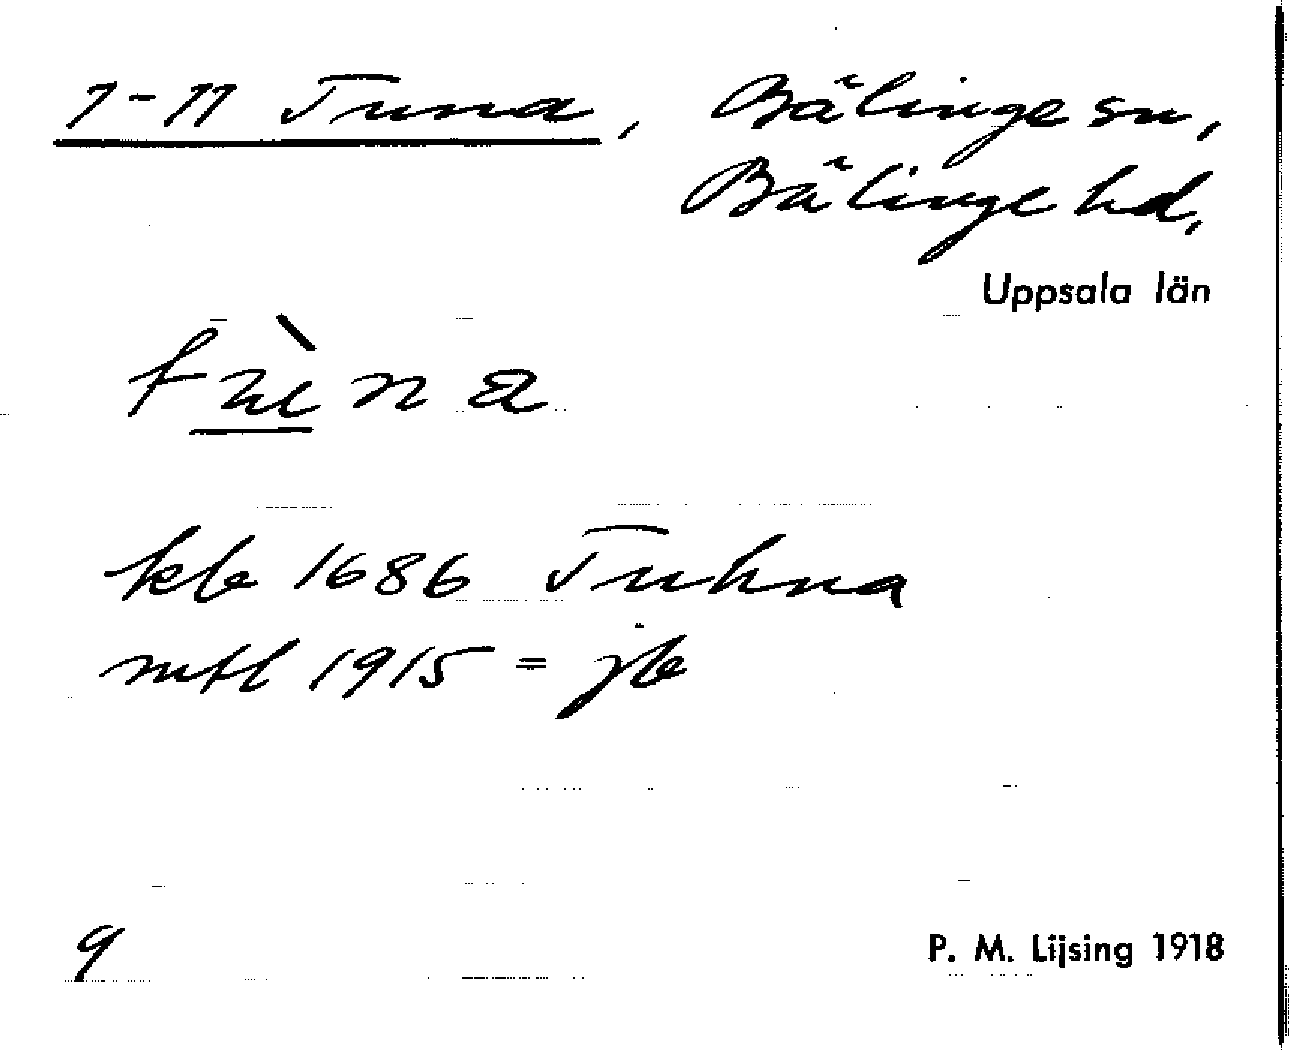 1-11 Tuna, Bälinge sn,
Bälinge hd,
Uppsala län
tɯ̀na
kb 1686 Tuhna
mtl 1915 = jb
9
P. M. Lijsing 1918